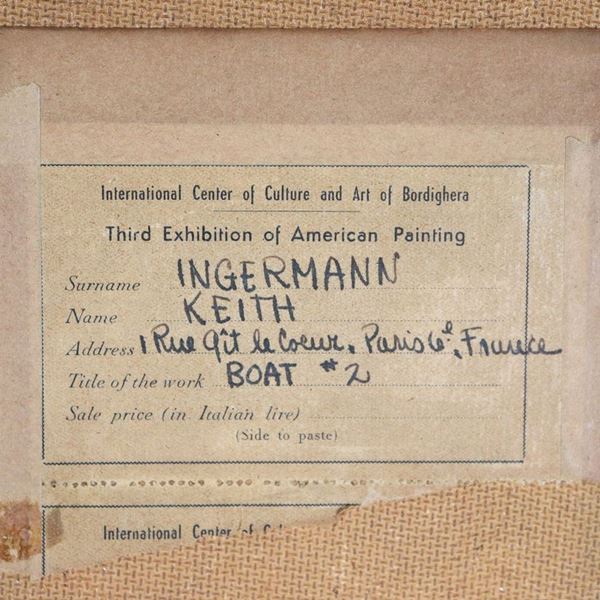 International Center of Culture and Art of Bordighera
Third Exhibition of American Painting
Surname INGERMANN
Name KEITH
Address 1 Rue Gît le Coeur, Paris 6e, France
Title of the work BOAT #2
Sale price (in Italian lire)
(Side to paste)
International Center of